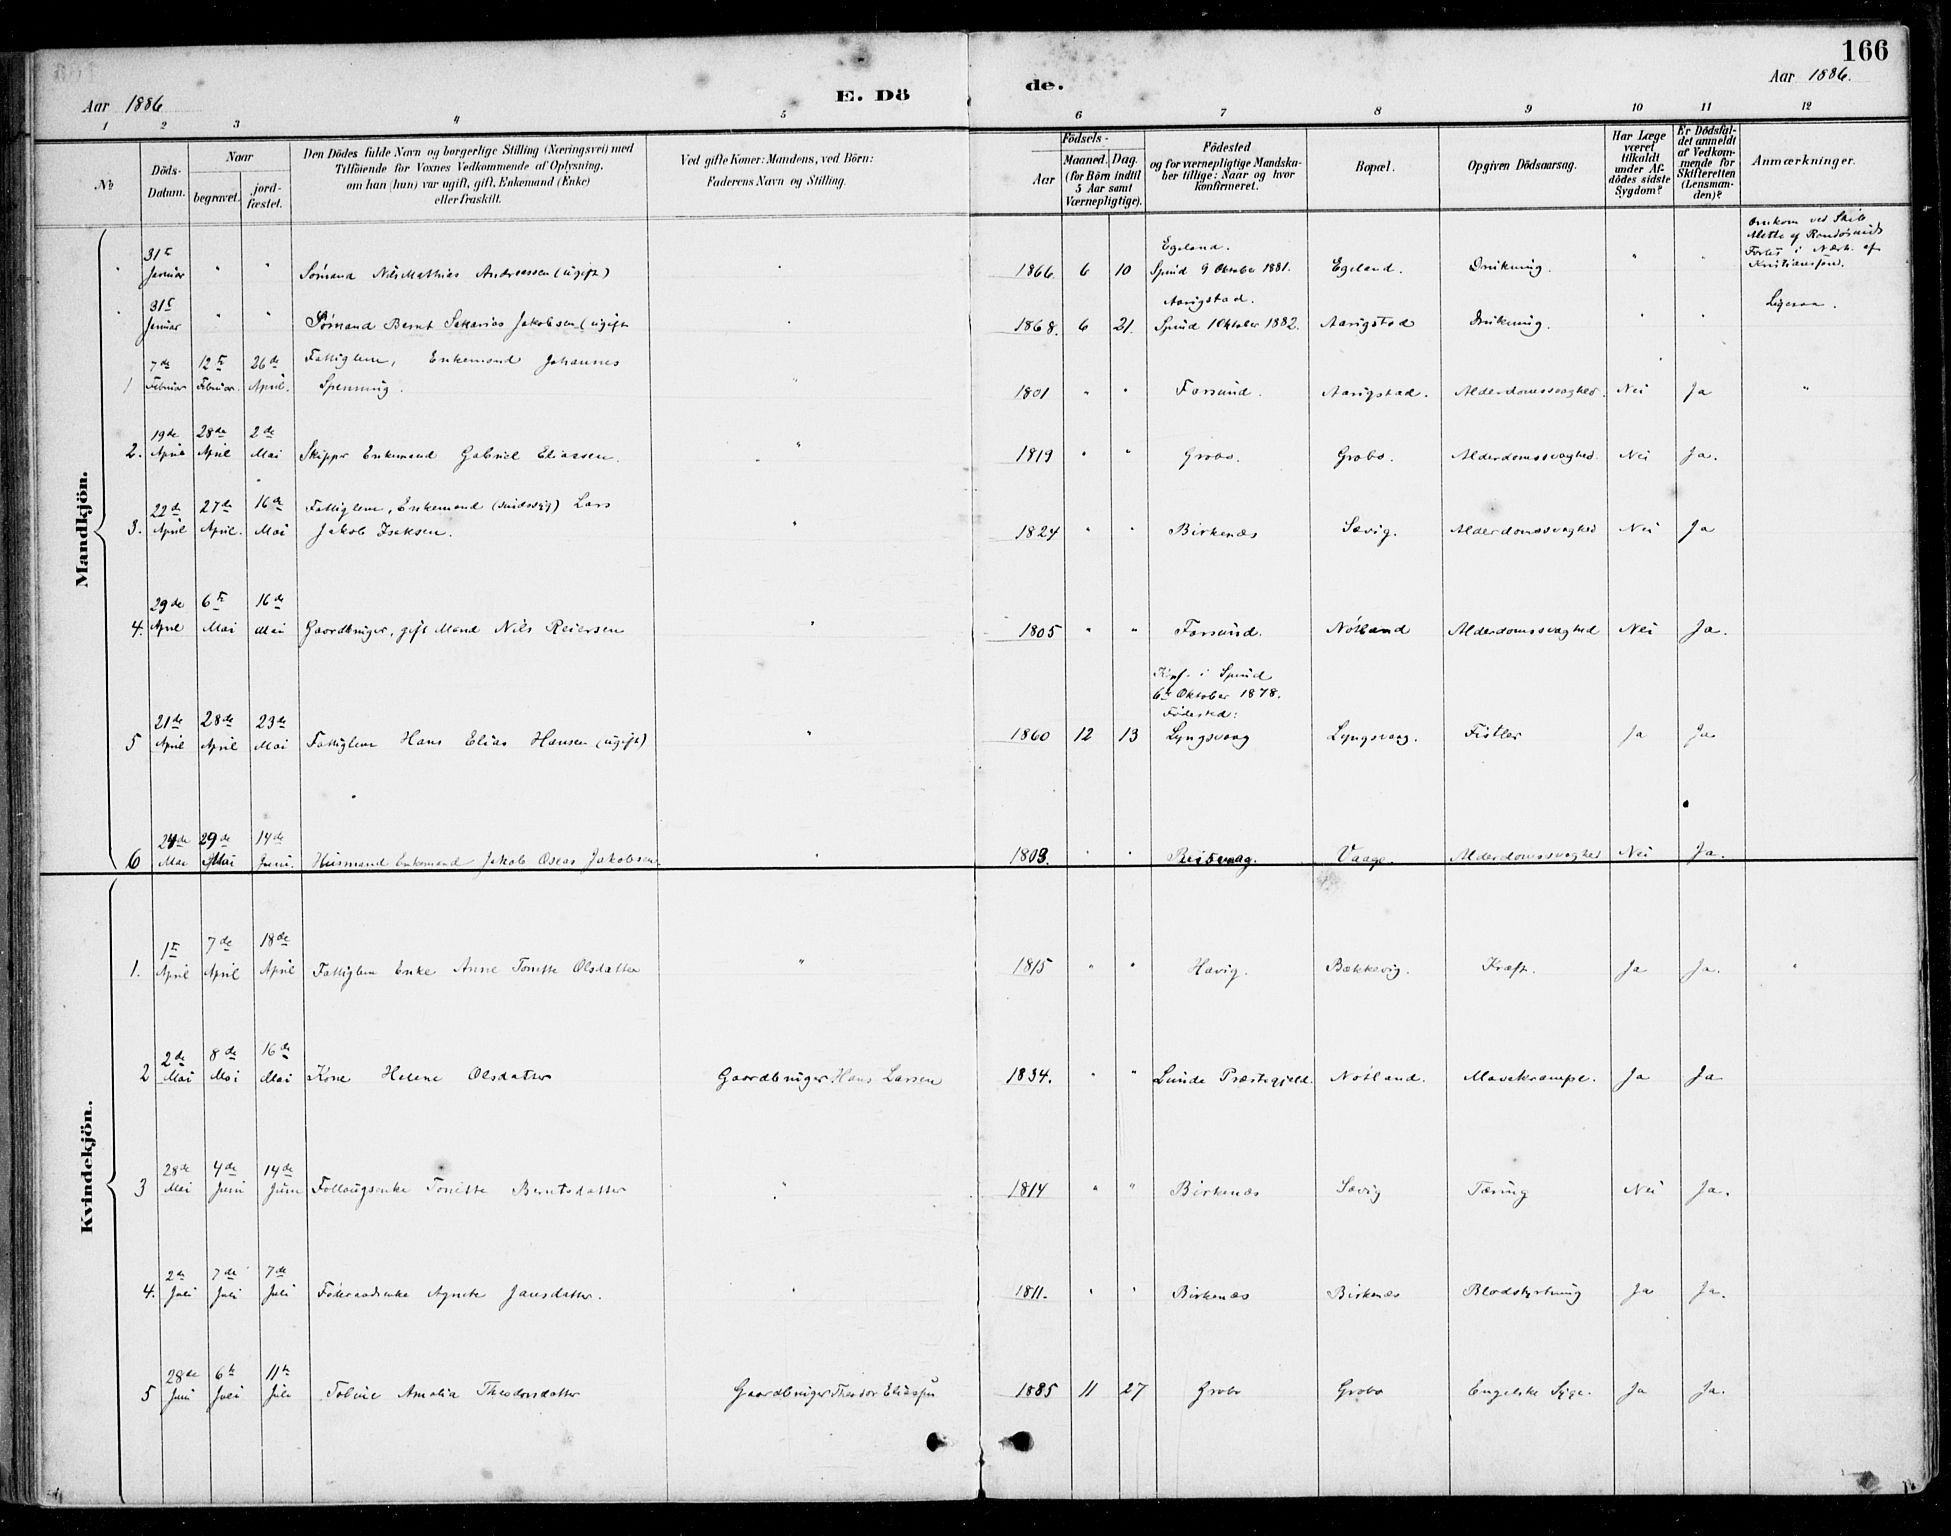 166
Aar 1886
E. Dö
de.
Aar 1886.
1 2 3 4 5 6 7 8 9 10 11 12
No
Döds-Datum.
Naar
begravet.
jord-fæstet.
Den Dödes fulde Navn og borgerlige Stilling (Næringsvei) med
Tilföiende for Voxnes Vedkommende af Oplysning,
om han (hun) var ugift, gift, Enkemand (Enke)
eller fraskilt.
Ved gifte Koner: Mandens, ved Börn:
Faderens Navn og Stilling.
Födsels-
Aar
Maaned. Dag.
(for Börn indtil
5 Aar samt
Værnepligtige).
Födested
og for værnepligtige Mandska-
ber tillige: Naar og hvor
konfirmeret.
Bopæl.
Opgiven Dödsaarsag.
Har Læge
været
tilkaldt
under Af-
dödes sidste
Sygdom?
Er Dödsfal-
det anmeldt
af Vedkom-
mende for
Skifteretten
(Lensman-
den)?
Anmærkninger.
Mandkjön.
" 31te Januar " " Sømand Nils Mathias Andreassen (ugift) " 1866. 6 10 Egeland. Spind 9 Oktober 1881. Egeland. Drukning. " " Omkom ved Skib
Mette af Randøsunds
Forlis i Nærh. af
Kristianssand.
" 31te Januar " " Sømand Bernt Sakarias Jakobsen (ugift " 1868. 6 21. Aarigstad. Spind 1 Oktober 1882. Aarigstad Drukning. " " Ligesaa.
1 7de Februar 12te Februar. 26de April. Fattiglem, Enkemand Johannes
Spenning. " 1801 " " Farsund. Aarigstad. Alderdomssvaghed. Nei Ja "
2. 19de April 28de April 2de Mai Skipper Enkemand Gabriel Eliassen. " 1819 " " Grobo. Grobo. Alderdomssvaghed. Nei Ja.
3. 22de April 27de April. 16de Mai Fattiglem, Enkemand (sindssyg) Lars
Jakob Isaksen. " 1824 " " Birkenæs Sævig. Alderdomssvaghed Nei Ja
4. 29de April 6te Mai 16de Mai Gaardbruger, gift Mand Nils Reiersen " 1805 " " Farsund. Nötland Alderdomssvaghed Nei Ja.
5 21de April 28de April 23de Mai Fattiglem Hans Elias Hansen (ugift) " 1860 12 13 Konf. i Spind
6te Oktober 1878.
Fødested:
Lyngsvaag Lyngsvaag. Fistler Ja Ja
6 24de Mai 29de Mai 14de Juni. Husmand Enkemand Jakob Oseas Jakobsen " 1803. " " Reisvaag. Vaage. Alderdomssvaghed Nei Ja.
Kvindekjön.
1. 1te April 7de April 18de April Fattiglem Enke Anne Tonette Olsdatter " 1815 " " Havig. Bækkevig. Kræft. Ja Ja. "
2 2de Mai 8de Mai 16de Mai Kone Helene Olsdatter Gaardbruger Hans Larsen 1834. " " Lunde Præstegjeld. Nötland. Mavekrampe. Ja Ja
3 28de Mai 4de Juni 14de Juni Tonette Berntsdatter " 1814 " " Birkenæs Sævig Tæring Nei Ja.
4. 2de Juli 7de Juli 7de Juli Føderaadsenke Agnete Jansdatter. " 1811. " " Birkenæs Birkenæs Blodstyrtning Ja Ja.
5 28de Juni 6te Juli 11te Juli Tobine Amalia Theodorsdatter Gaardbruger Theodor Eliassen 1885 11 27 Grobo Grobo Engelske Syge. Ja Ja.